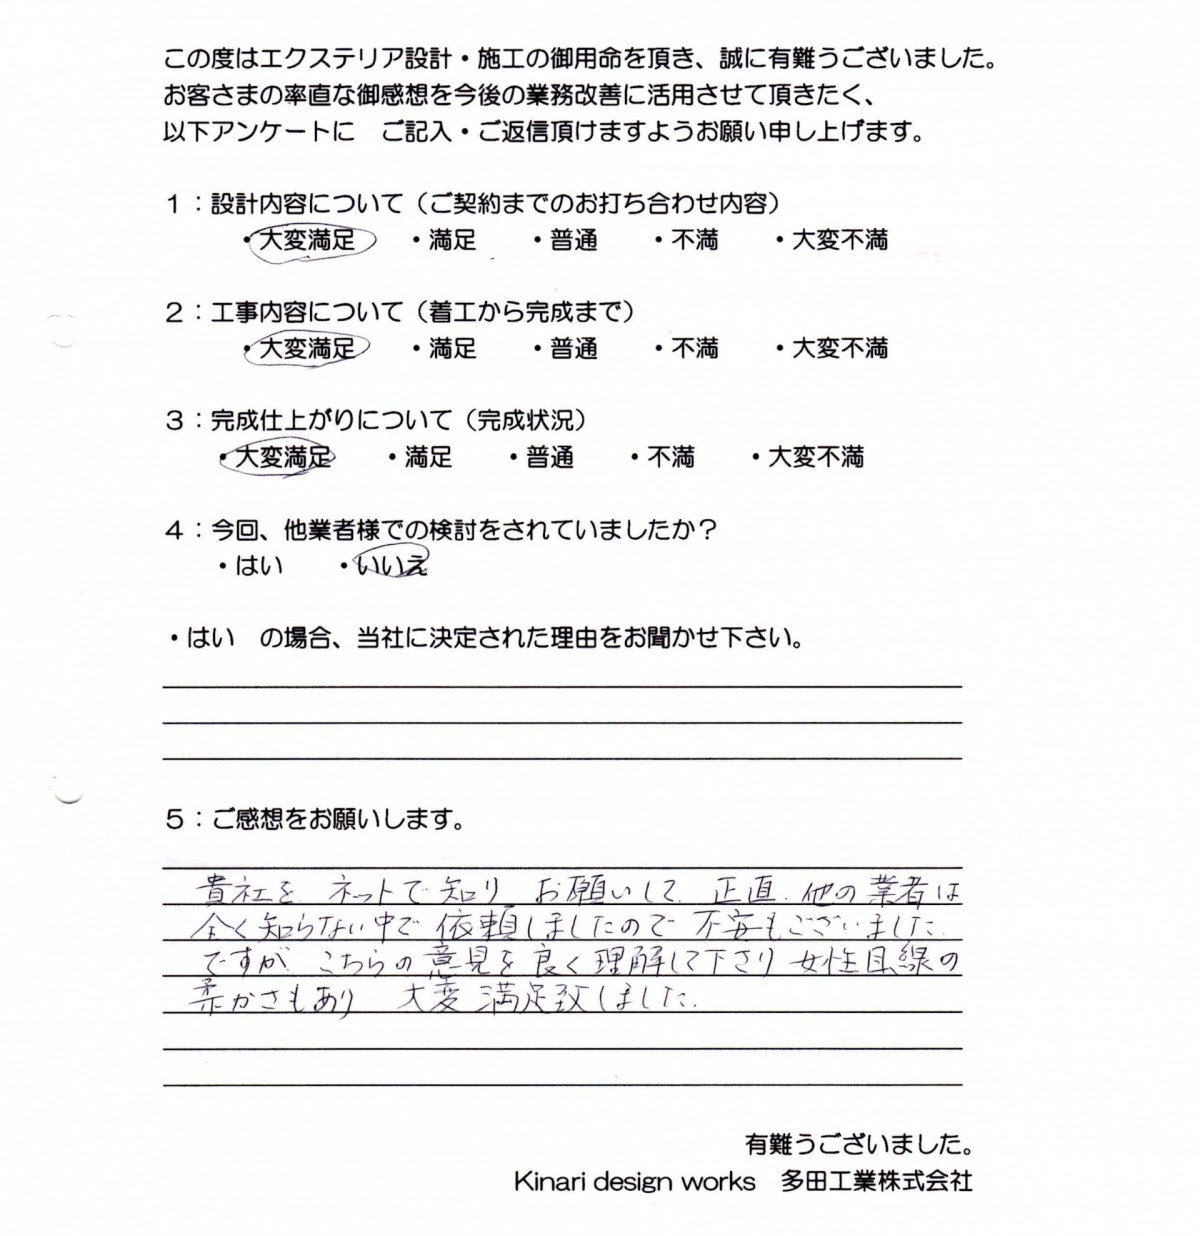 この度はエクステリア設計・施工の御用命を頂き、誠に有難うございました。
お客さまの率直な御感想を今後の業務改善に活用させて頂きたく、
以下アンケートに　ご記入・ご返信頂けますようお願い申し上げます。
1：設計内容について（ご契約までのお打ち合わせ内容）
・大変満足　・満足　・普通　・不満　・大変不満
2：工事内容について（着工から完成まで）
・大変満足　・満足　・普通　・不満　・大変不満
3：完成仕上がりについて（完成状況）
・大変満足　・満足　・普通　・不満　・大変不満
4：今回、他業者様での検討をされていましたか？
・はい　・いいえ
・はい　の場合、当社に決定された理由をお聞かせ下さい。
5：ご感想をお願いします。
貴社を ネットで知り お願いして 正直、他の業者は
全く知らない中で 依頼しましたので 不安もございました
ですが こちらの意見を良く理解して下さり 女性目線の
柔かさもあり 大変満足致しました。
有難うございました。
Kinari design works　多田工業株式会社